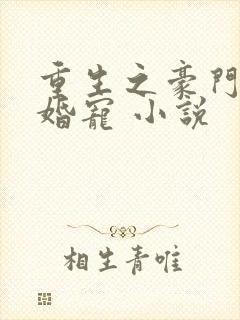 重生之豪門
婚寵 小說
相生青唯